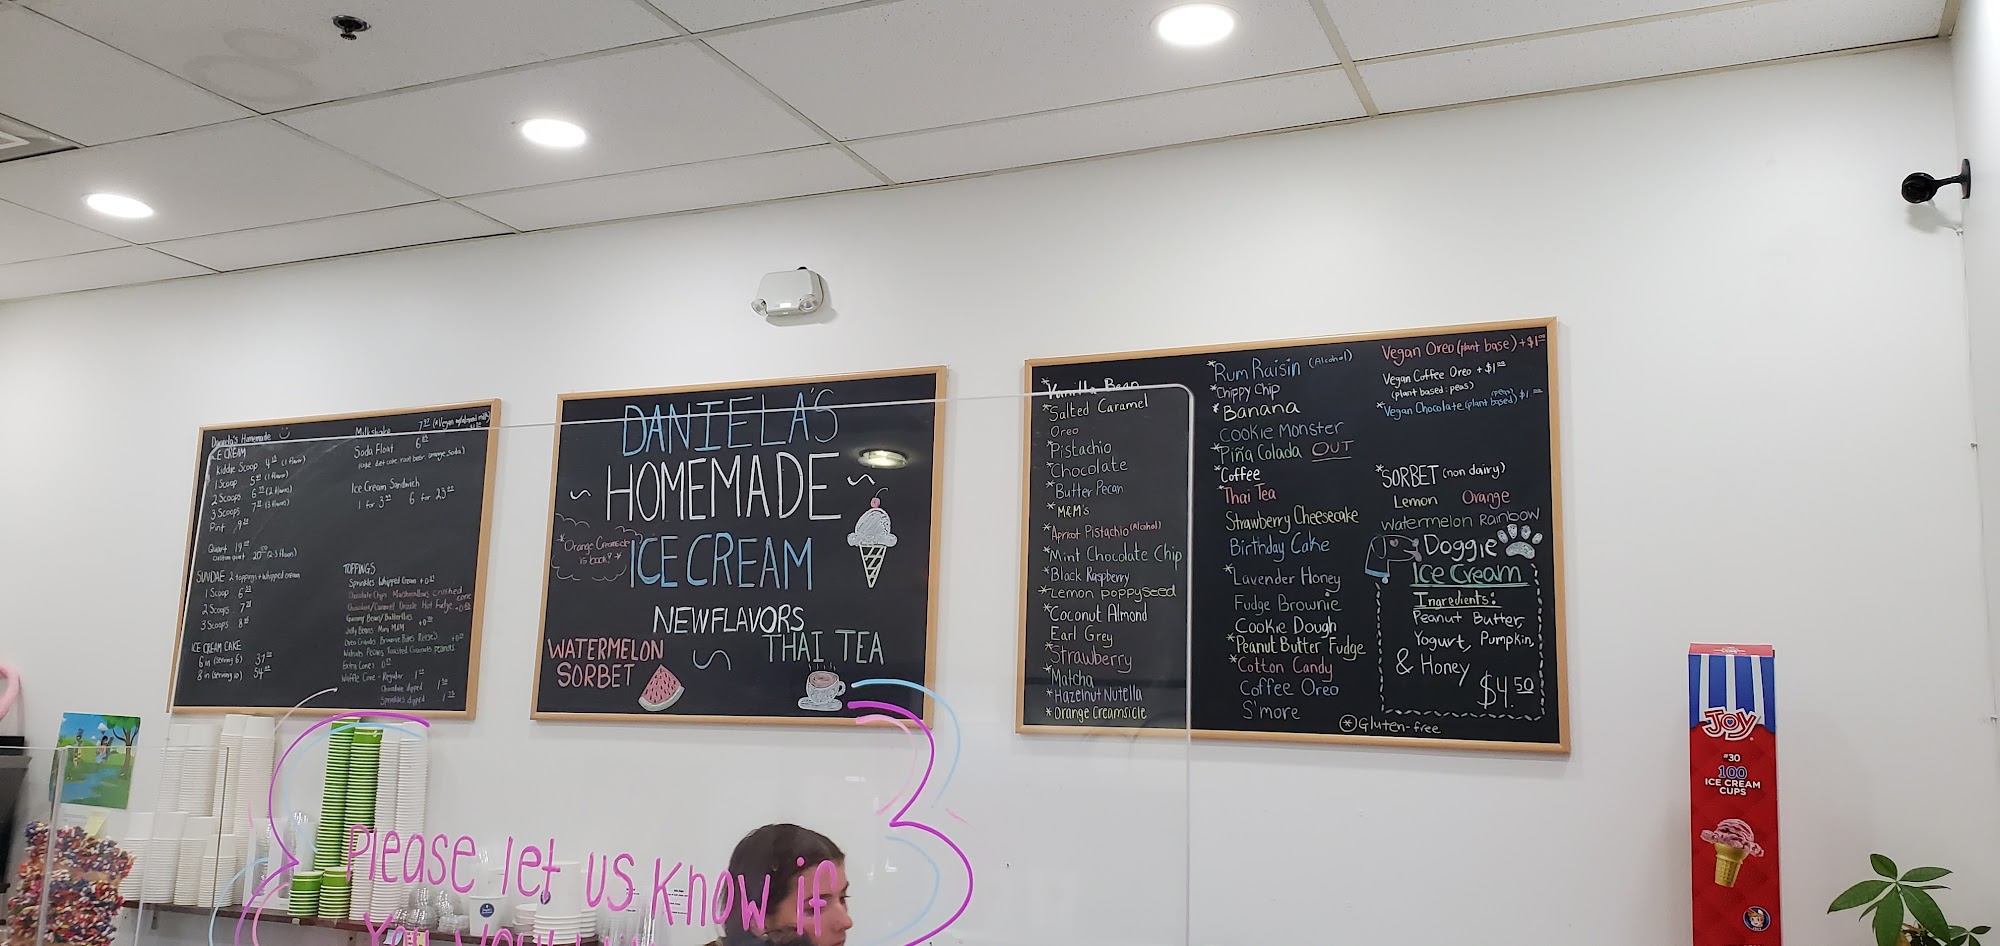 Daniela's Homemade
ICE CREAM
Kiddie Scoop (1 flavor)
1 Scoop (1 flavor)
2 Scoops (2 flavors)
3 Scoops (3 flavors)
Pint
Quart
SUNDAE 2 toppings + whipped cream
1 Scoop
2 Scoops
3 Scoops
ICE CREAM CAKE
6 in (serving 6)
8 in (serving 10)
Milkshake
Soda Float
Ice Cream Sandwich
1 for 3 6 for
TOPPINGS
Sprinkles Whipped Cream
Chocolate Chips Marshmallows crushed cone
Chocolate/Caramel Drizzle Hot Fudge
Jelly Beans M&M
Extra Cone
Waffle Cone - Regular
Chocolate dipped
Sprinkles dipped
DANIELA'S
~ HOMEMADE ~
ICE CREAM
*Orange Creamsicle
is back! *
NEW FLAVORS
WATERMELON
SORBET
THAI TEA
*Vanilla Bean
*Salted Caramel
Oreo
*Pistachio
*Chocolate
*Butter Pecan
*M&M's
*Apricot Pistachio (Alcohol)
*Mint Chocolate Chip
*Black Raspberry
*Lemon poppyseed
*Coconut Almond
Earl Grey
*Strawberry
*Matcha
*Hazelnut Nutella
*Orange Creamsicle
*Rum Raisin (Alcohol)
*Chippy Chip
*Banana
Cookie Monster
*Piña Colada OUT
*Coffee
*Thai Tea
Strawberry Cheesecake
Birthday Cake
*Lavender Honey
Fudge Brownie
Cookie Dough
*Peanut Butter Fudge
*Cotton Candy
Coffee Oreo
S'more
Vegan Oreo (plant base) + $1.00
Vegan Coffee Oreo + $1.00
(plant based: peas)
*Vegan Chocolate (plant based) $1.00
*SORBET (non dairy)
Lemon Orange
Watermelon Rainbow
Doggie
Ice Cream
Ingredients:
Peanut Butter,
Yogurt, Pumpkin,
& Honey
$4.50
* Gluten-free
Please let us know if
JOY
#30
100
ICE CREAM
CUPS